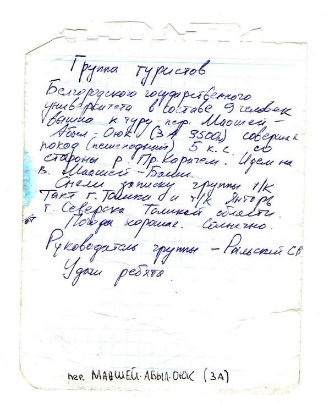 Группа туристов
Белгородского государственного
университета в составе 9 человек
вышла к туру пер. Мавшей-
Абыл-Оюк (3А 3500) соверш.
поход (пешеходный) 5 к.с. со
стороны р. Пр. Карагем. Идем на
в. Мавшей-Баши.
Сняли записку группы т/к
Такт г. Томска и т/к Янтарь
г. Северска Томской области.
Погода хорошая. Солнечно.
Руководитель группы – Рыльский С.В.
Удачи ребята.
пер. МАВШЕЙ-АБЫЛ-ОЮК (3А)